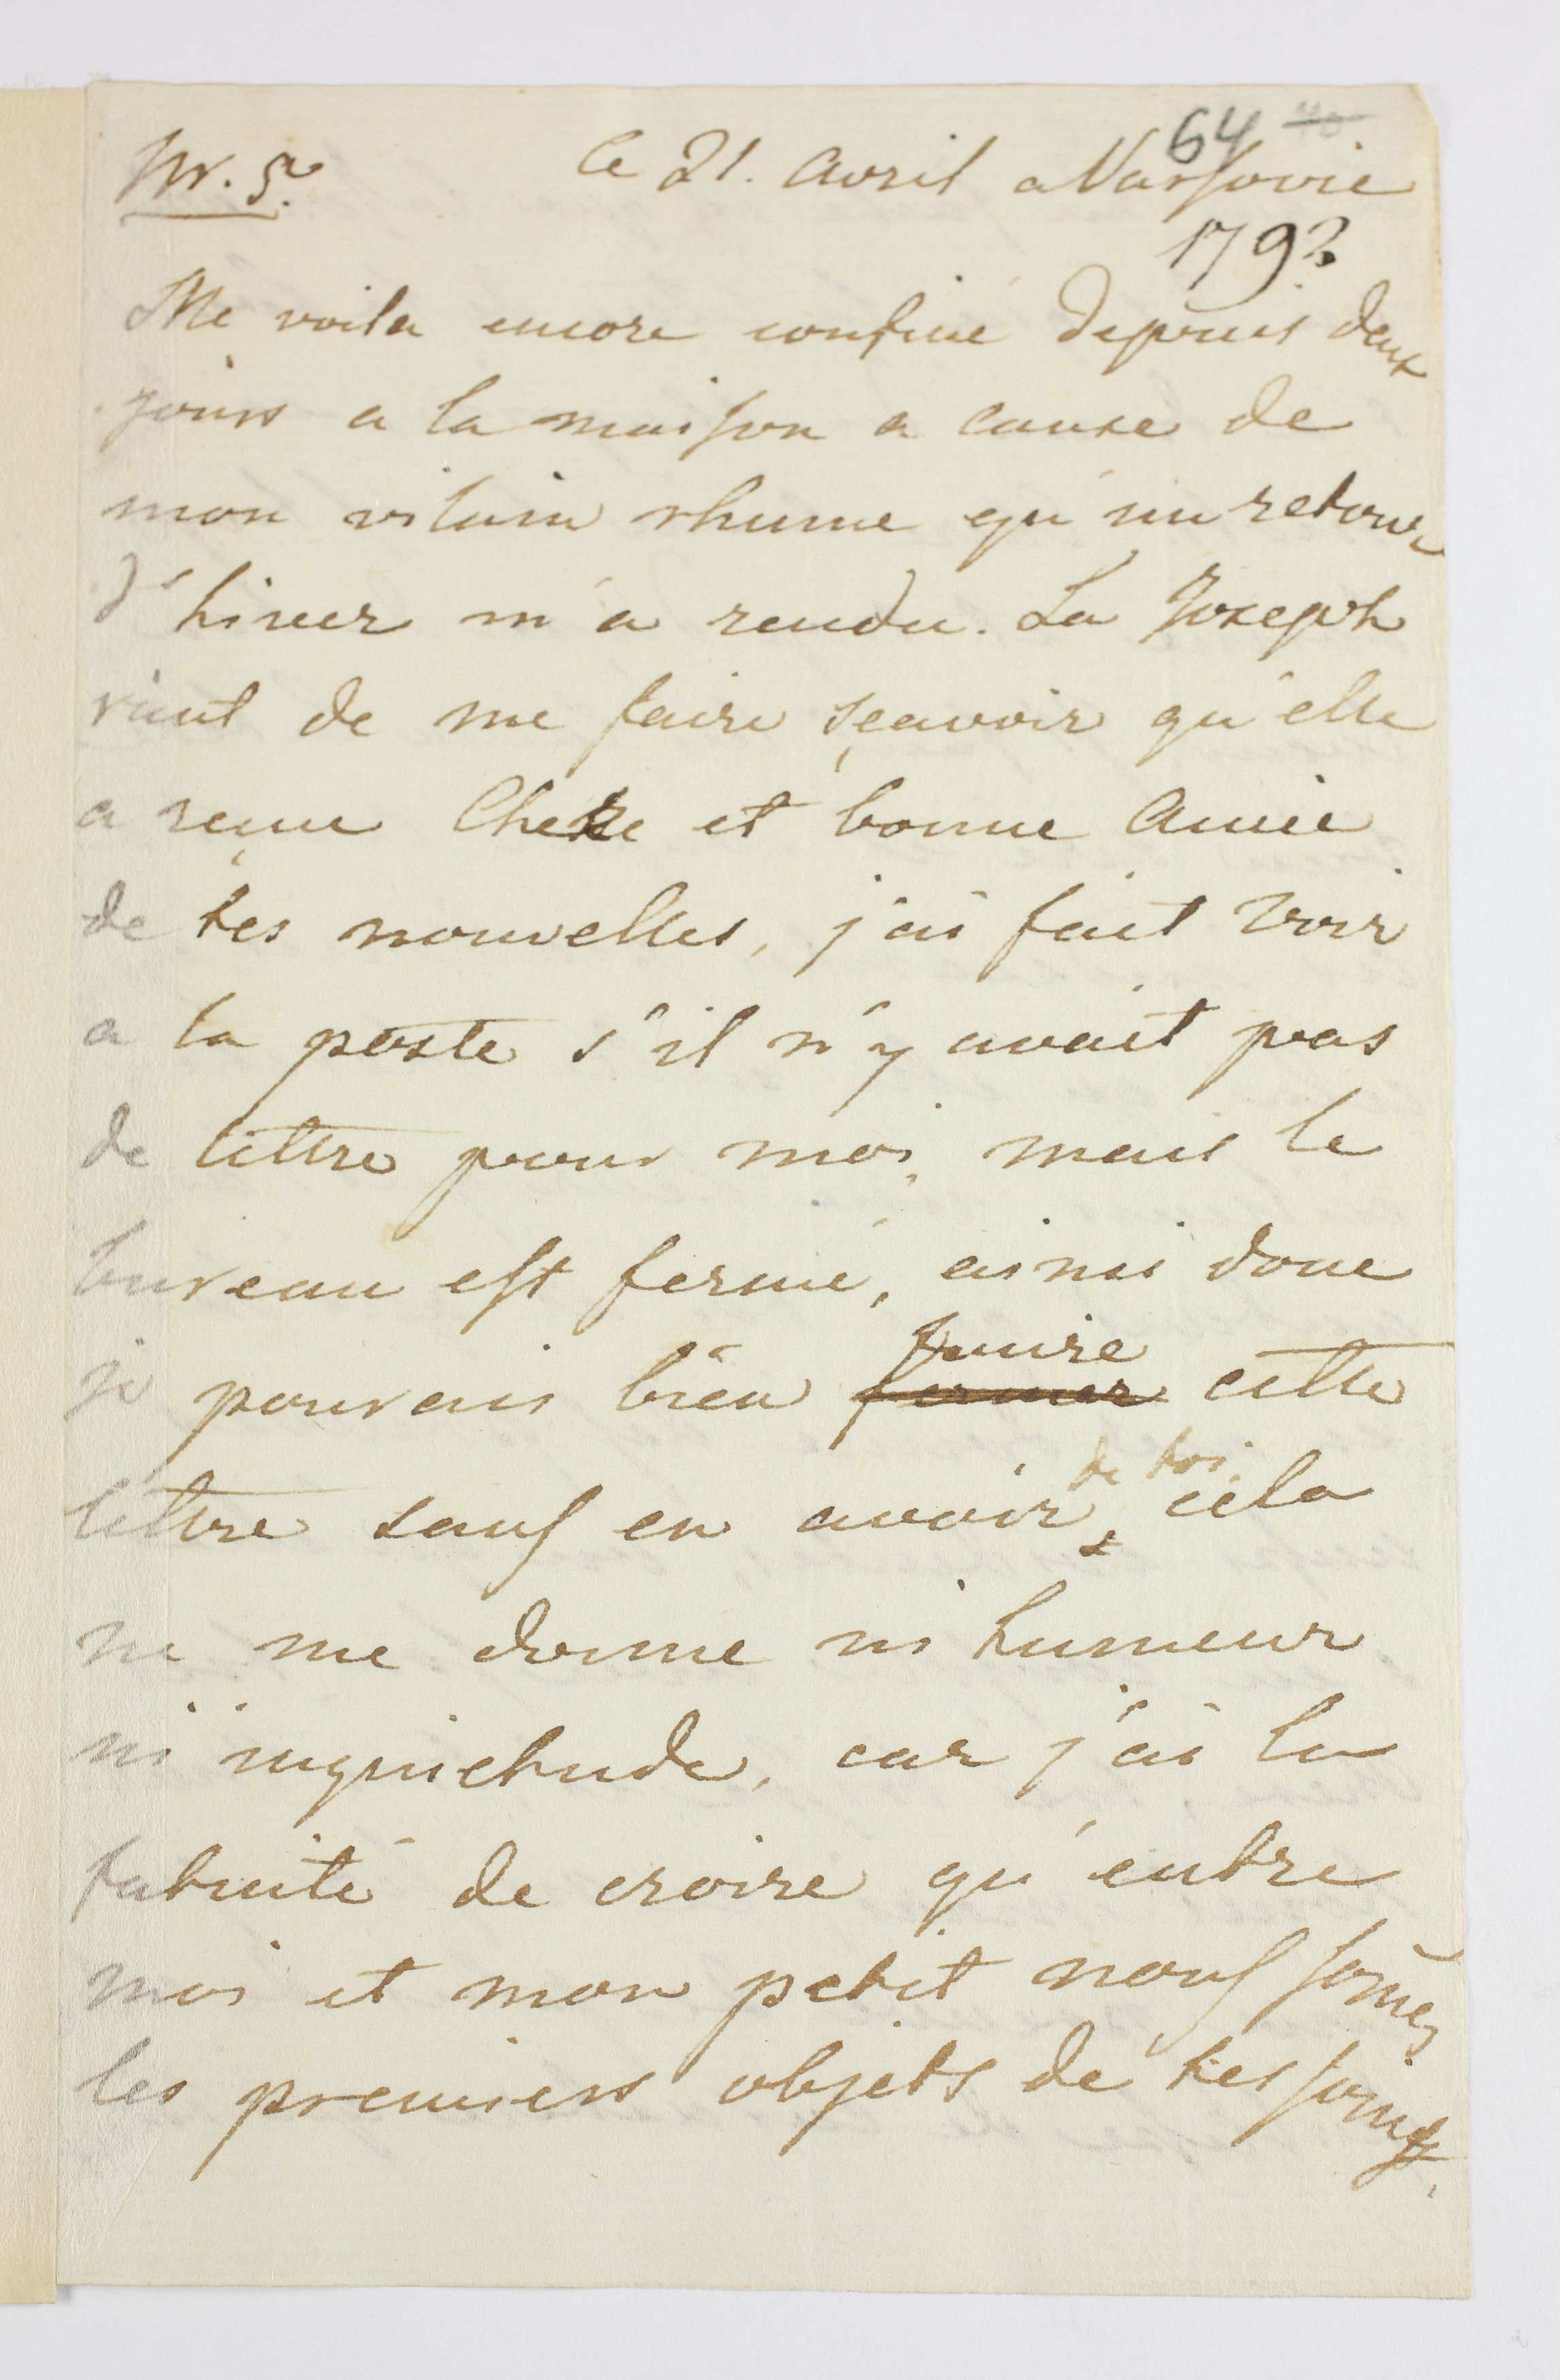 Nr. 5. ce 21. Avril a Varsovie
64
179?
Me voila encore confiné depuis deux
jours a la maison a cause de
mon vilain rhume qu'un retour
d'hiver m'a rendu. La Joseph
vient de me faire sçeavoir qu'elle
a reçue Chere et bonne Amie
de tes nouvelles, j'ai fait voir
a la poste s'il n'y avait pas
de lettre pour moi, mais le
bureau est fermé, ainsi donc
je pourrais bien fermer cette
lettre sans en avoir de toi, cela
ne me donne ni humeur
ni inquietude, car j'ai la
fatuité de croire qu'entre
moi et mon petit nous somes
les premiers objets de tes soins.